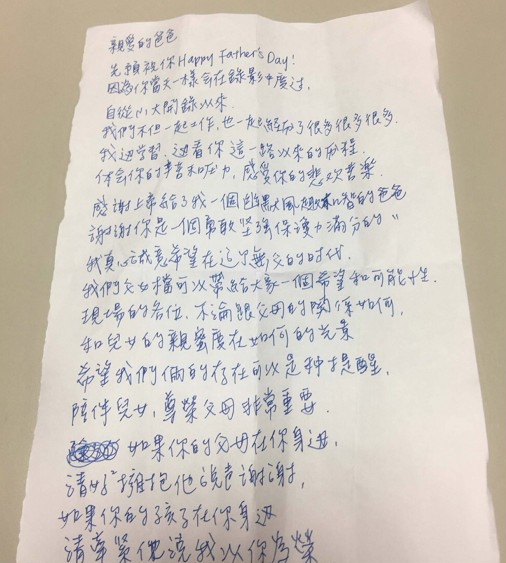 親愛的爸爸
先預祝你Happy Father's Day!
因為你當天一樣會在錄影中度过,
自從小大開錄以來.
我們不但一起工作,也一起經歷了很多很多很多.
我边學習,边看你這一路以來的歷程.
体會你的辛苦和壓力,感受你的悲欢喜樂.
感謝上帝給了我一個幽默風趣 的爸爸
謝謝你是一個勇敢坚强保護力滿分的"
我真心誠意希望在這个無父的时代.
我們父女檔可以帶給大家一個希望和可能性.
現場的各位,不論跟父母的関係如何,
和兒女的親蜜度在如何的光景
希望我們倆的存在可以是种提醒,
陪伴兒女,尊榮父母非常重要.
如果你的父母在你身边,
請好好擁抱他说声謝謝,
如果你的孩子在你身边
請牽緊他说我以你為榮